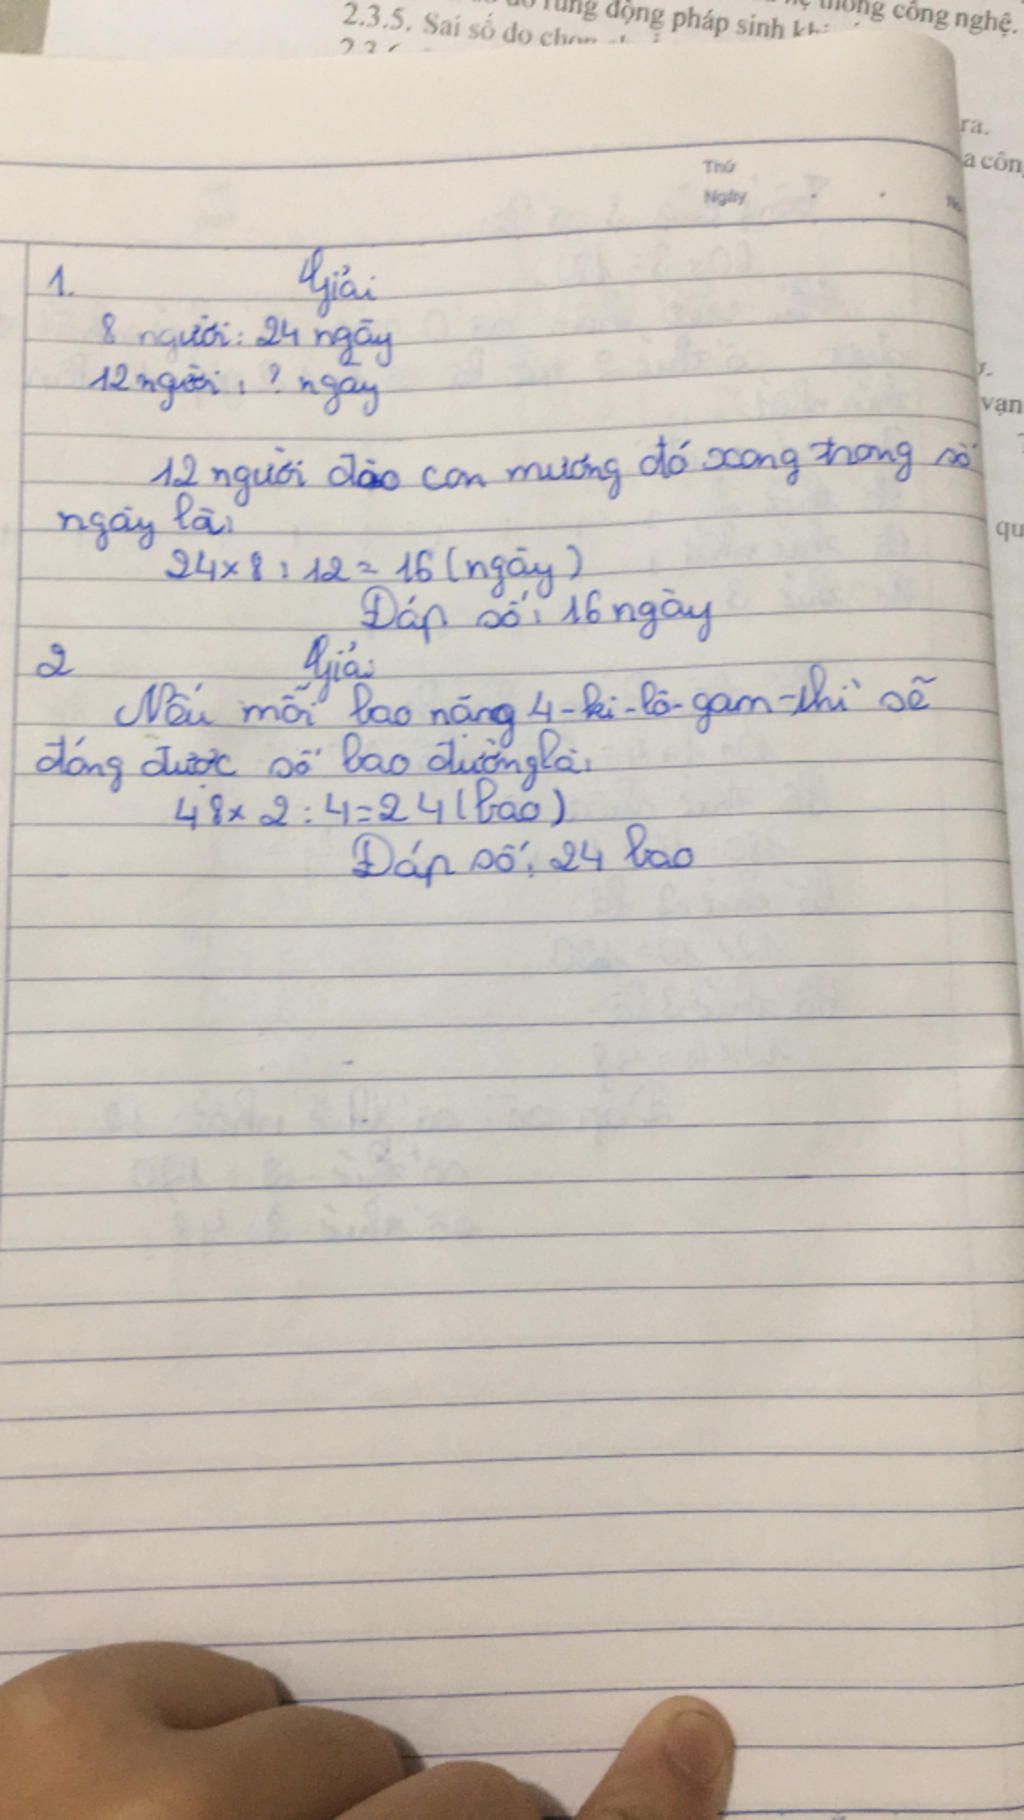 2.3.5. Sai số do chọn
rung động pháp sinh
thống công nghệ.
ra.
a côn
Thứ
Ngày
No.
vạn
qu
1. Giải
8 người: 24 ngày
12 người: ? ngày
12 người đào con mương đó xong trong số
ngày là:
24 x 8 : 12 = 16 (ngày)
Đáp số: 16 ngày
2 Giải
Nếu mỗi bao nặng 4-ki-lô-gam-thì sẽ
đóng được số bao đường là:
48 x 2 : 4 = 24 (bao)
Đáp số: 24 bao